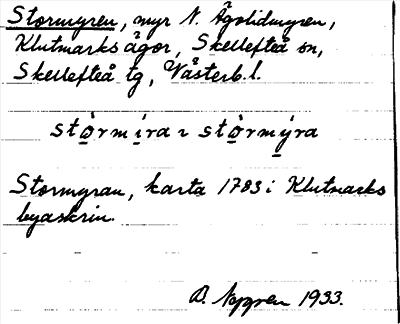 Stormyren, myr N. Ågolidmyren,
Klutmarks ägor, Skellefteå sn,
Skellefteå tg, Västerb. l.
stòrmíra ~ stòrmýra
Stormyran, karta 1783 i Klutmarks
byaskrin.
O. Nygren 1933.